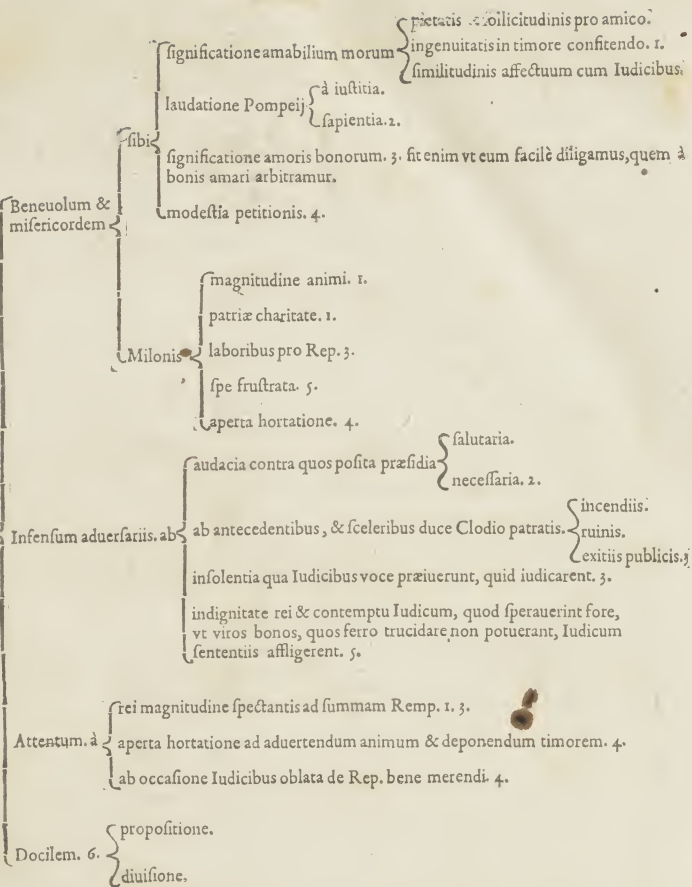 pietatis & ſollicitudinis pro amico.
ſignificatione amabilium morum
ingenuitatis in timore confitendo. 1.
ſimilitudinis affectuum cum Iudicibus.
laudatione Pompeij
à iuſtitia.
ſapientia. 2.
ſibi
ſignificatione amoris bonorum. 3. fit enim vt eum facilè diligamus, quem à
bonis amari arbitramur.
modeſtia petitionis. 4.
Beneuolum &
miſericordem
magnitudine animi. 1.
patriæ charitate. 1.
Milonis
laboribus pro Rep. 3.
ſpe fruſtrata. 5.
aperta hortatione. 4.
audacia contra quos poſita præſidia
ſalutaria.
neceſſaria. 2.
Infenſum aduerſariis. ab
ab antecedentibus, & ſceleribus duce Clodio patratis.
incendiis.
ruinis.
exitiis publicis. 3
inſolentia qua Iudicibus voce præiuerunt, quid iudicarent. 3.
indignitate rei & contemptu Iudicum, quod ſperauerint fore,
vt viros bonos, quos ferro trucidare non potuerant, Iudicum
ſententiis affligerent. 5.
rei magnitudine ſpectantis ad ſummam Remp. 1. 3.
Attentum. à
aperta hortatione ad aduertendum animum & deponendum timorem. 4.
ab occaſione Iudicibus oblata de Rep. bene merendi. 4.
Docilem. 6.
propoſitione.
diuiſione,